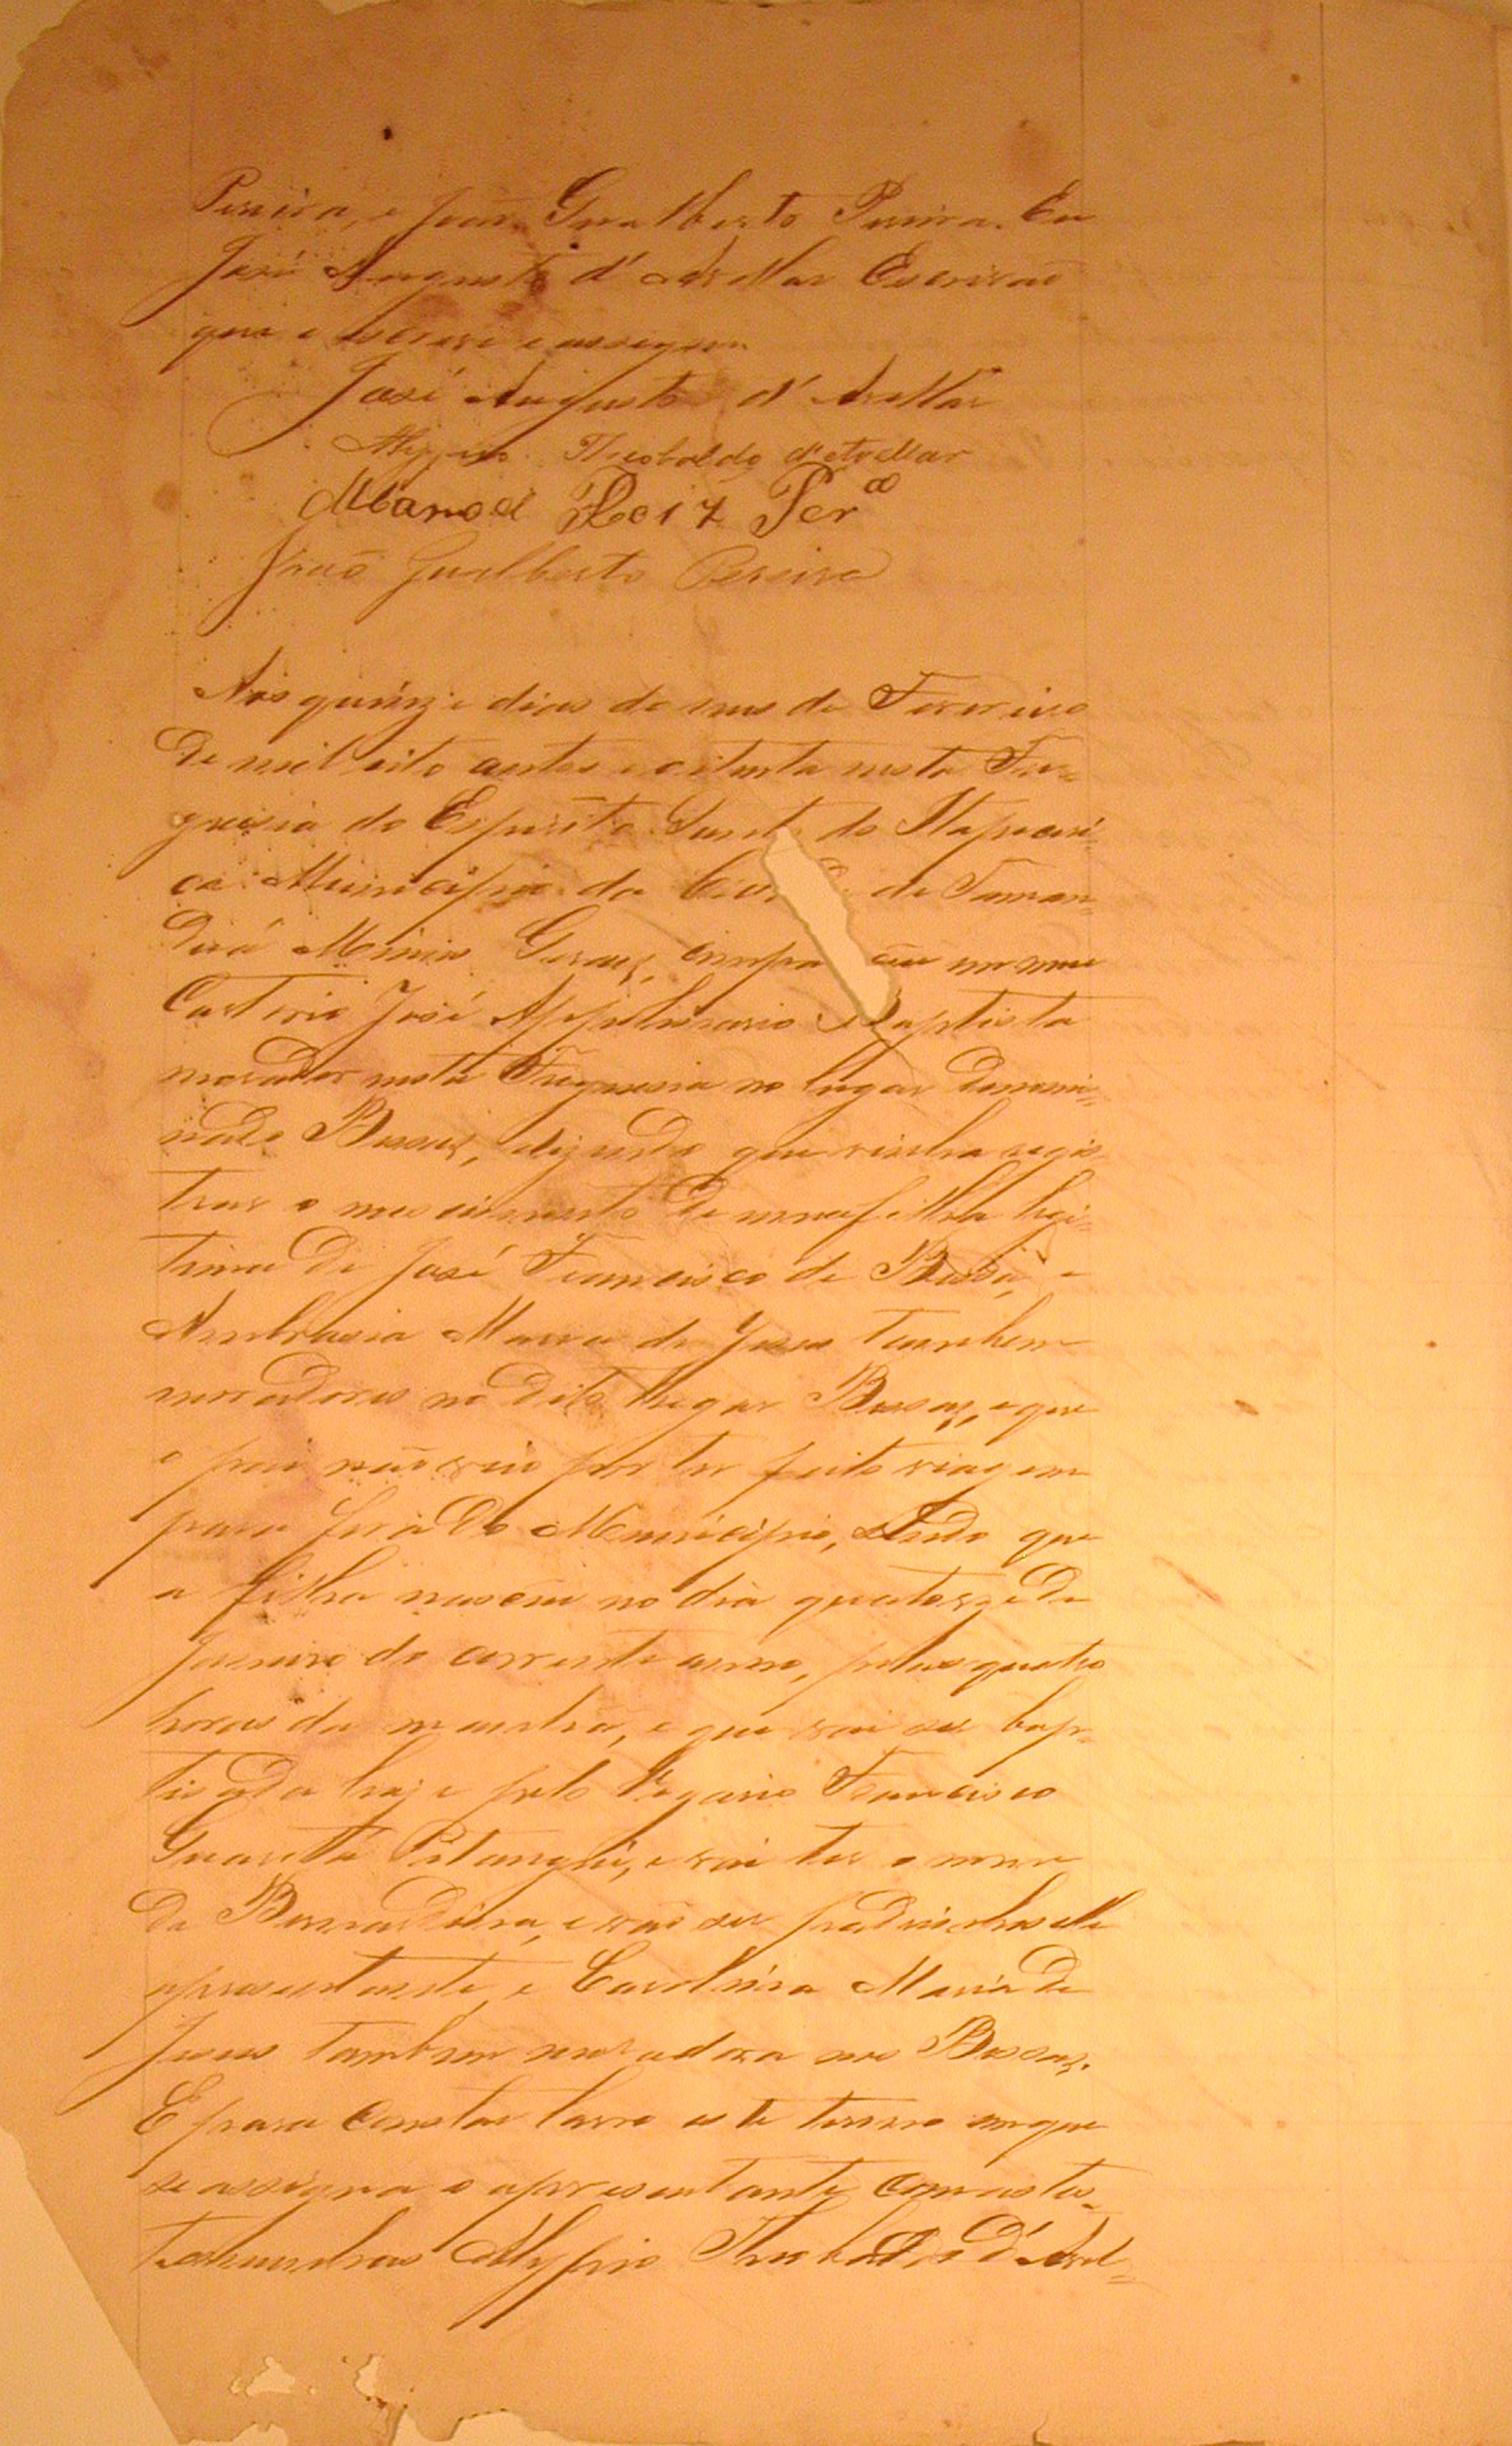 Pereira, e João Gualberto Pereira. Eu
José Augusto d'Avellar Escrivão
que o escrevi e assigno.
José Augusto d'Avellar
Alyppio Theobaldo d'Avellar
Manoel Roiz Per.ª
João Gualberto Pereira
Aos quinze dias do mes de Fevereiro
de mil oito centos e oitenta nesta Fre=
guesia do Espirito Santo do Itapeceri=
ca Municipio da de Taman=
duá Minas Geraes, compa ceu no meu
Cartorio José Appolinario Baptista
morador nesta Freguesia no lugar denomi=
nado dizendo que vinha regis=
trar o nascimento de uma filha legi=
tima de José Francisco de e
Ambrosia Maria de Jesus tambem
moradores no dito lugar e que
o pai não veio por ter feito viagem
para fora do Municipio, que
a filha nasceu no dia quatorze de
Janeiro do corrente anno, pelas quatro
horas da manhã, e que vai ser bap=
tisada hoje pelo Vigario Francisco
Guaritá Pitanguí, e vai ter o nome
de Bernardina, e vão ser padrinhos elle
apresentante, e Carolina Maria de
Jesus tambem moradora nos
E para constar lavro este termo em que
se assigna o apresentante com as tes=
temunhas Alyppio Theobaldo d'Avel=